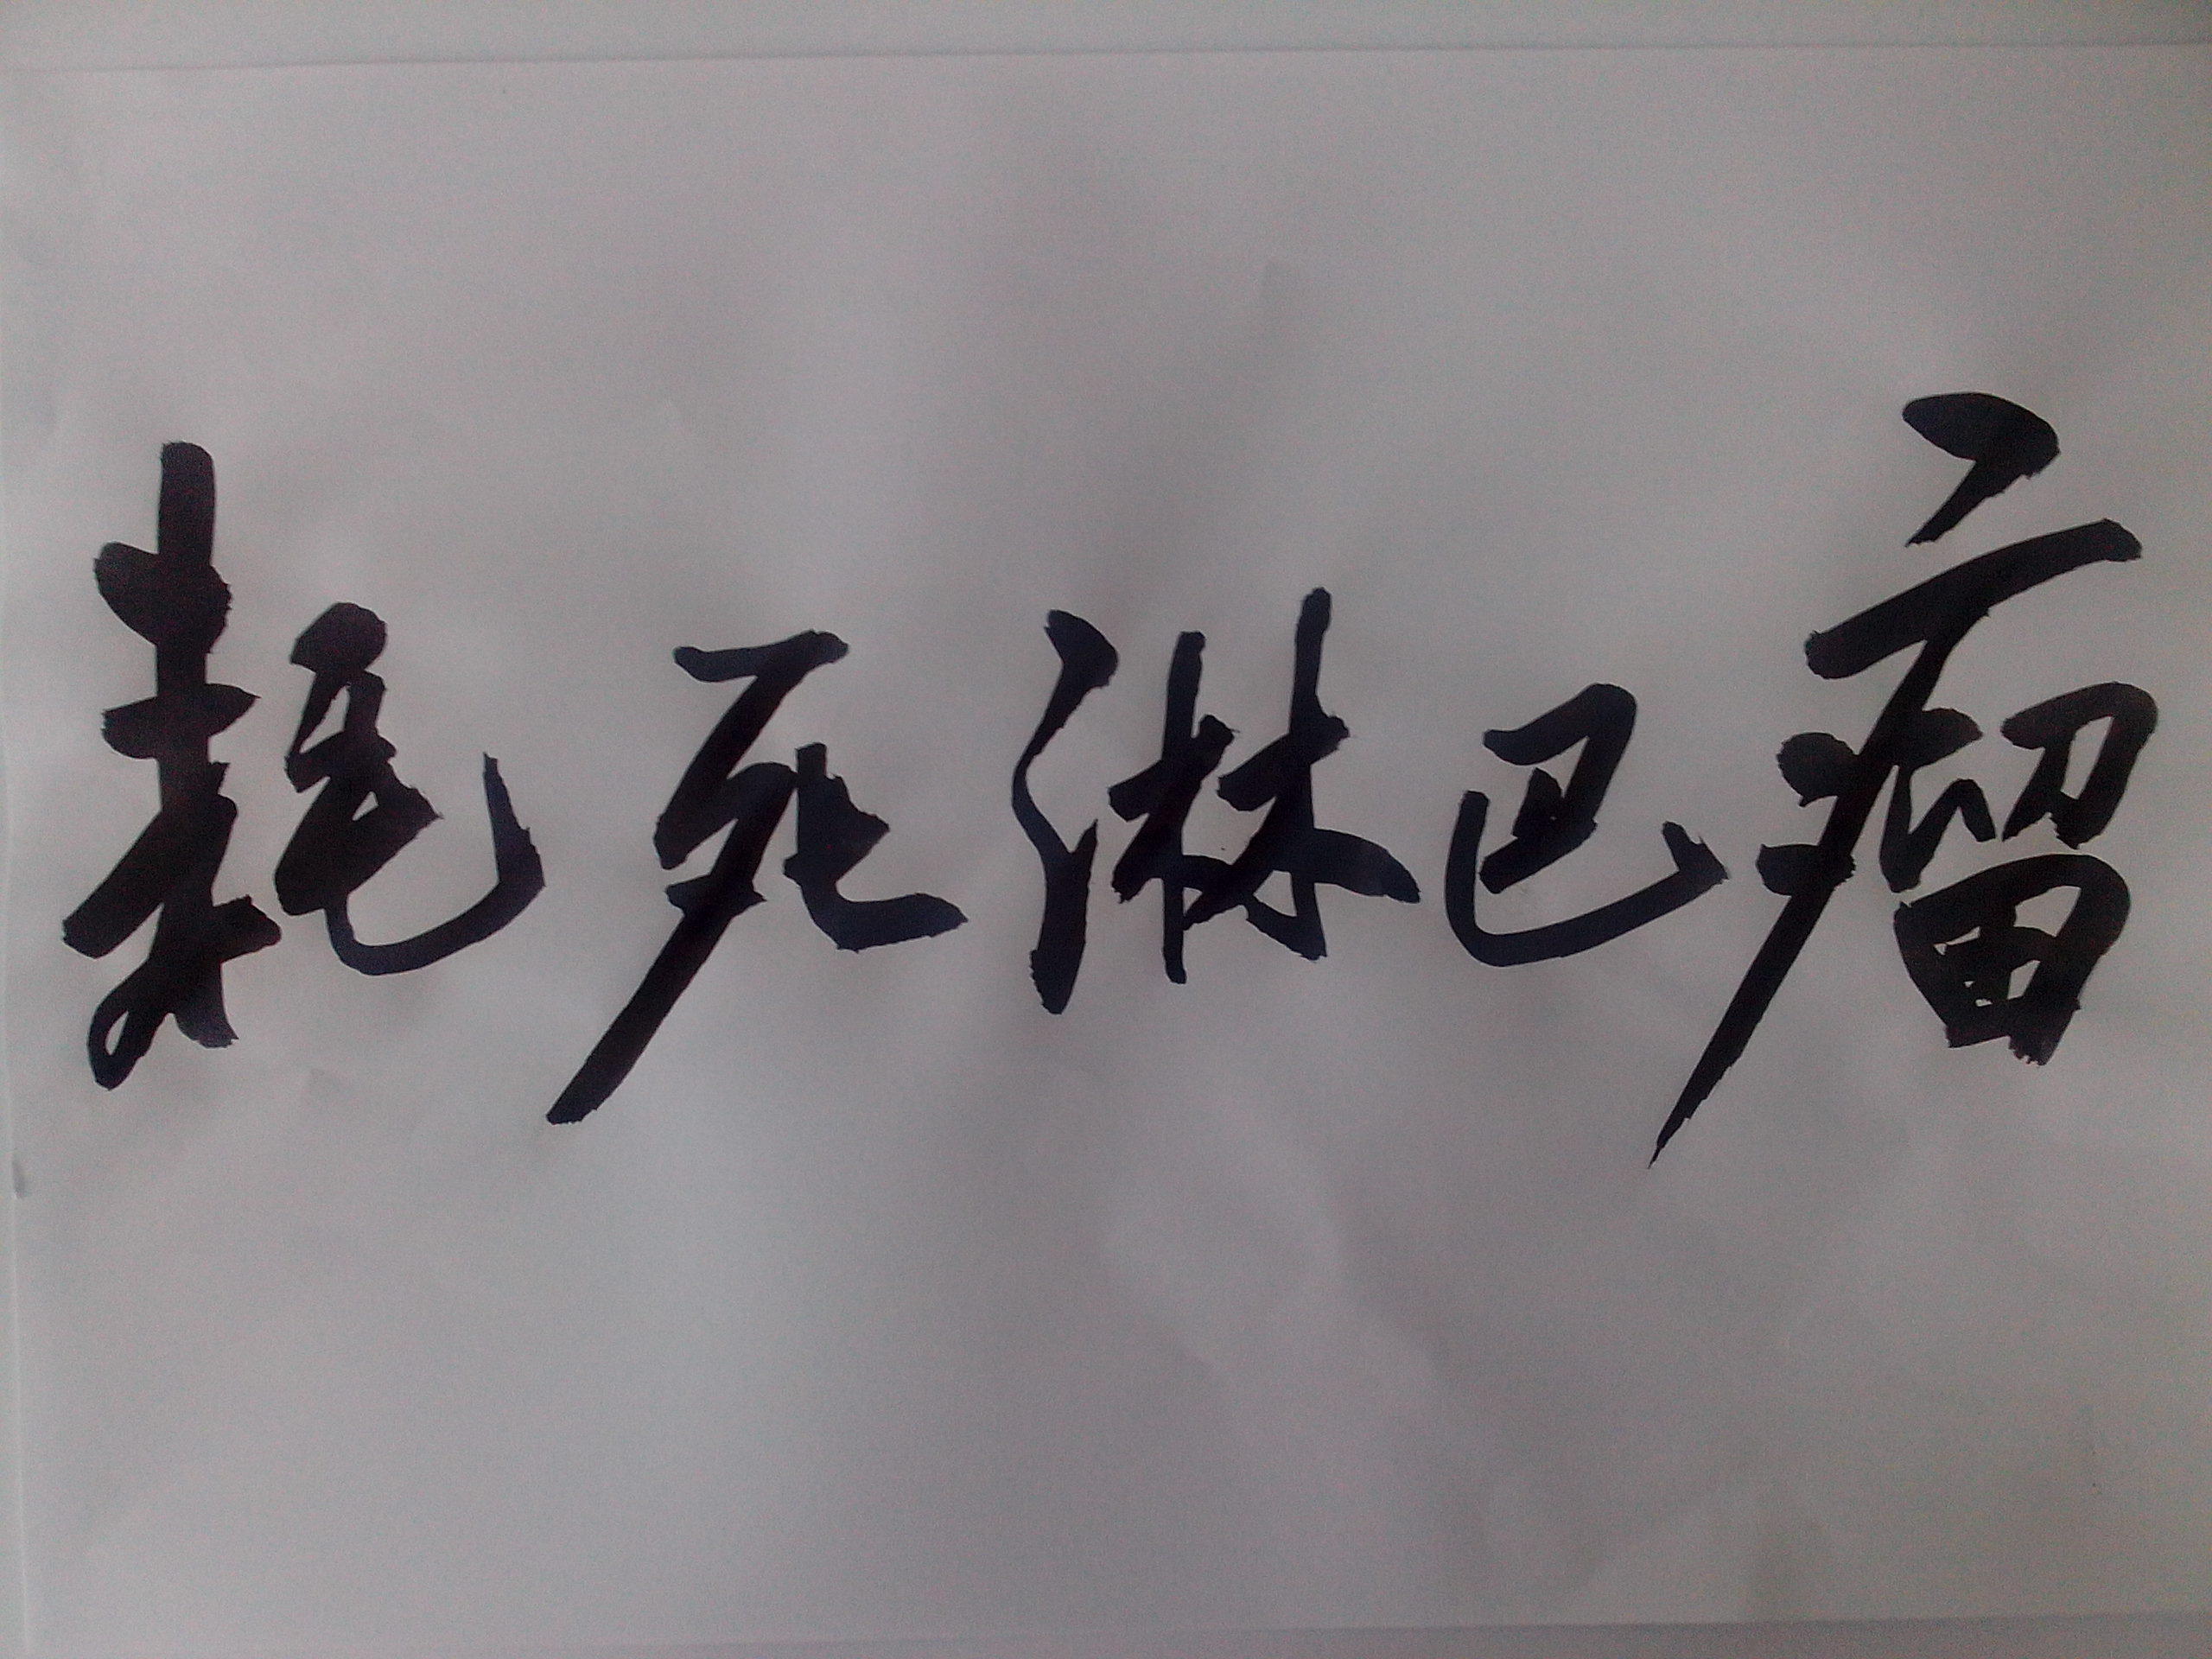 耗死淋巴瘤